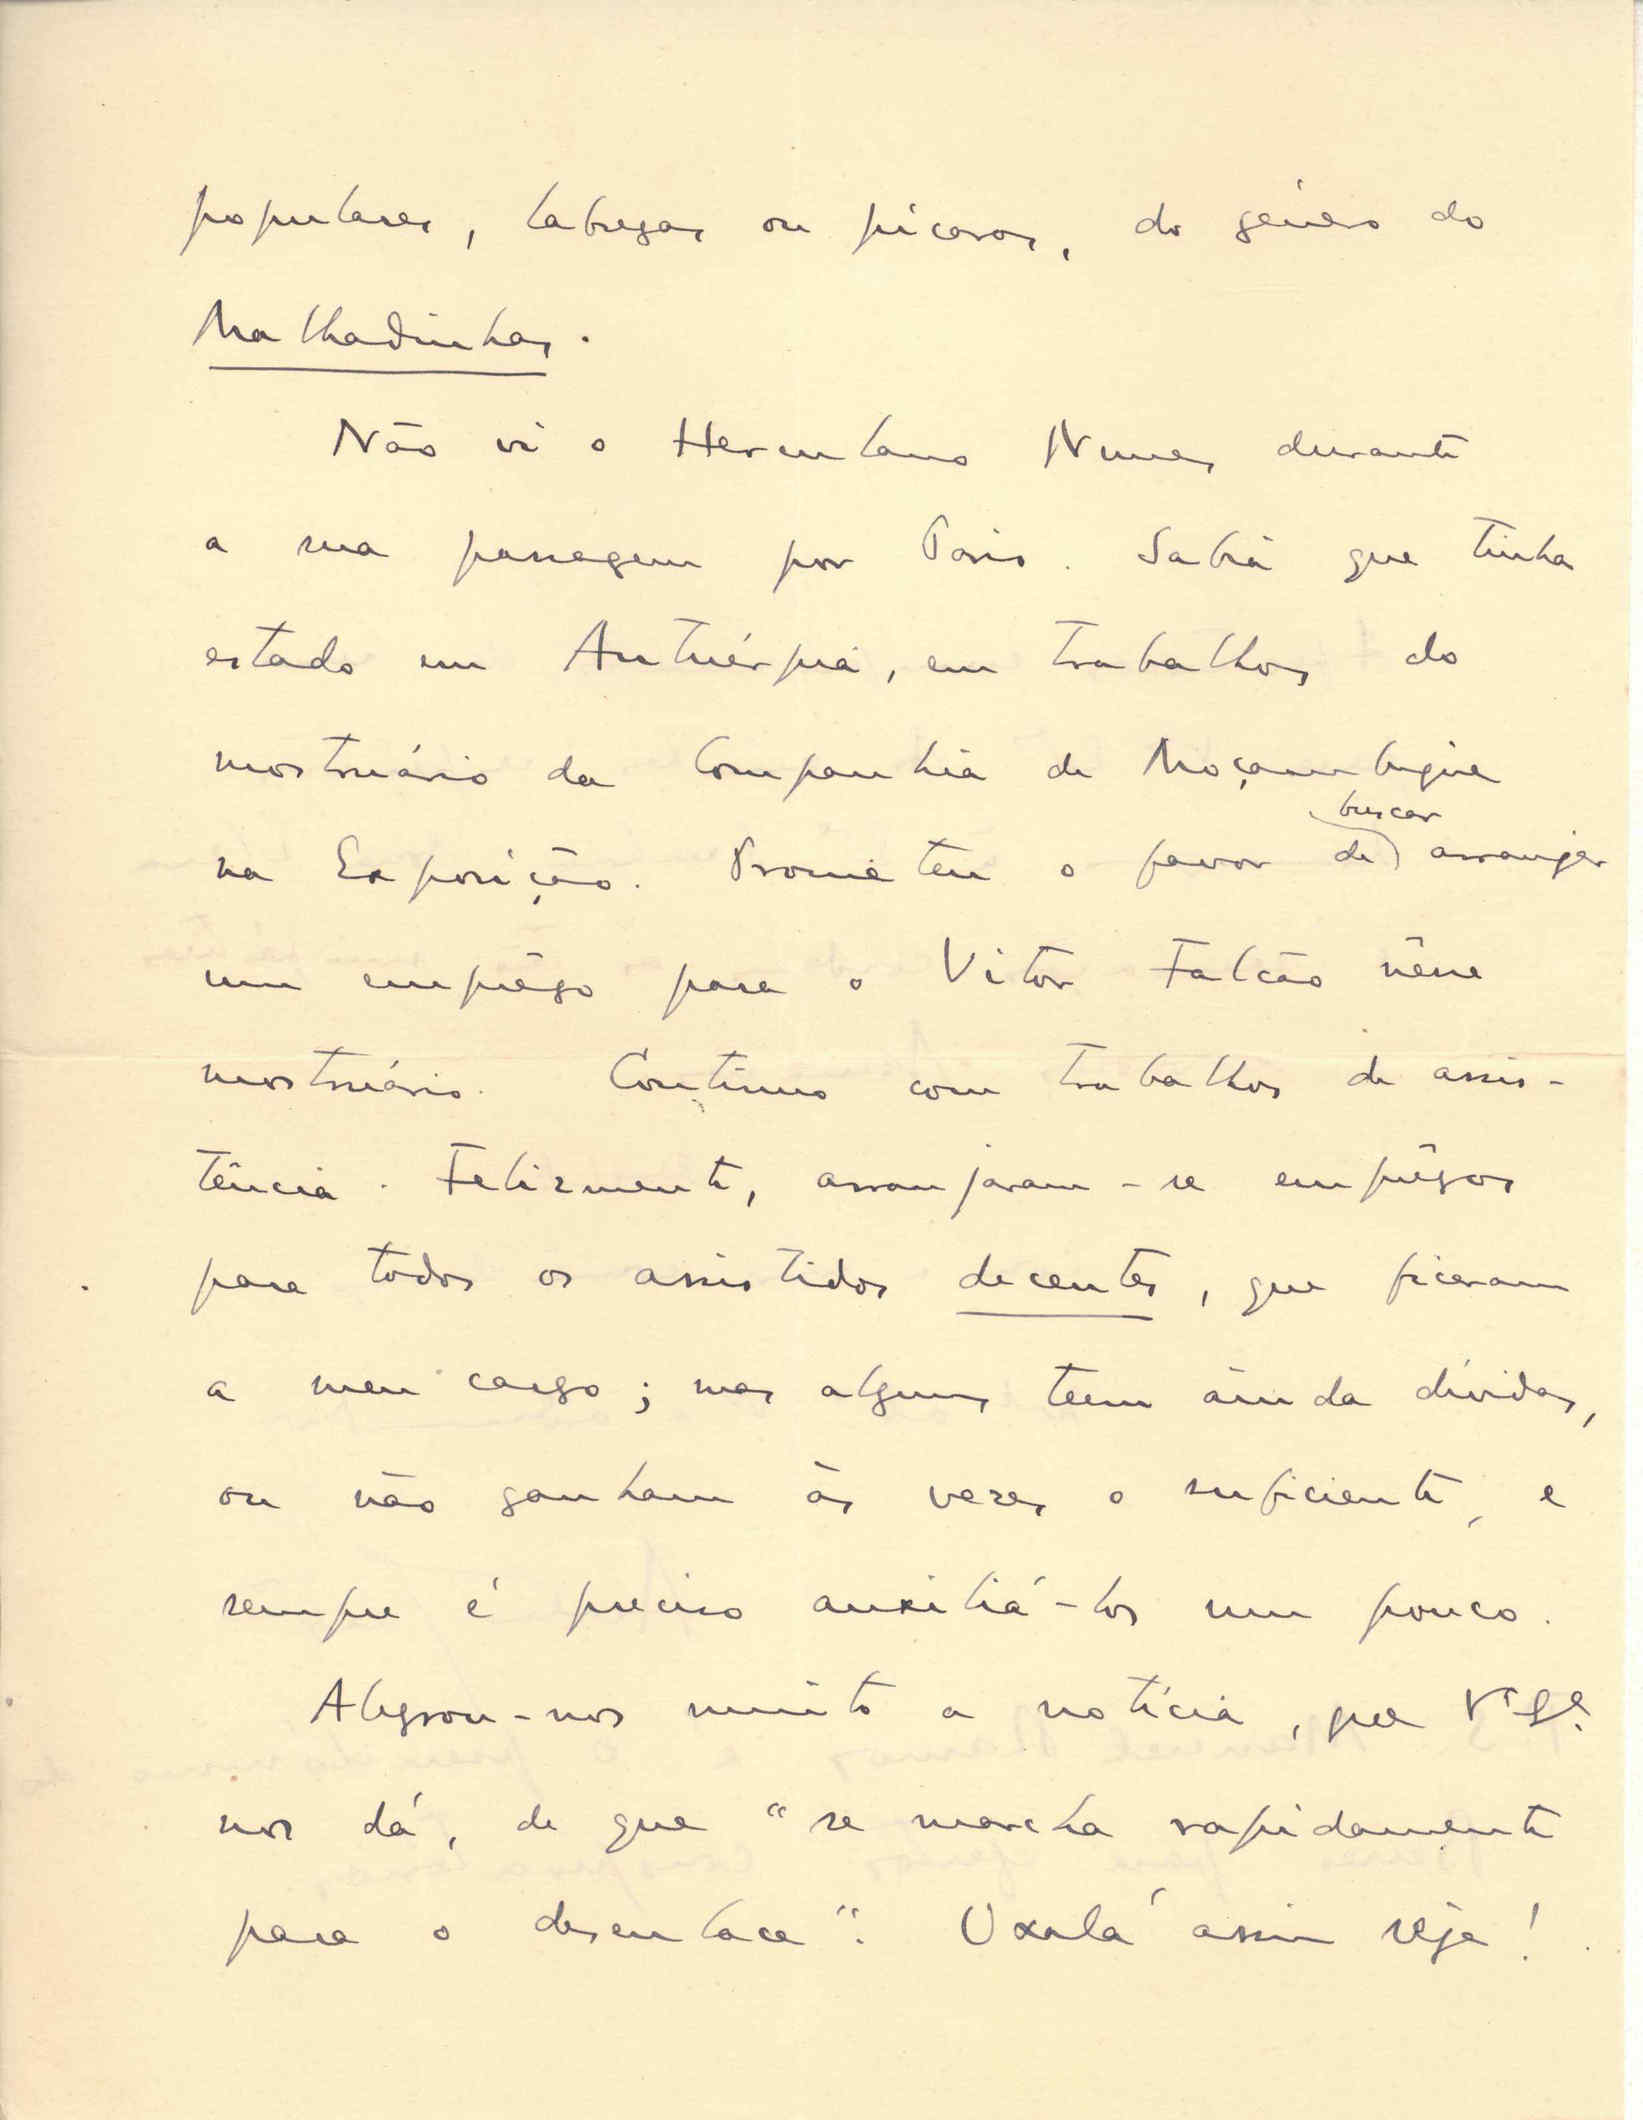 populares, labregas ou pícaras, do género do
Malhadinhas.
Não vi o Herculano Nunes durante
a sua passagem por Paris. Sabia que tinha
estado em Antuérpia, em trabalhos do
mostruário da Companhia de Moçambique
buscar
na Exposição. Prometeu o favor de arranjar
um emprêgo para o Vitor Falcão nêsse
mostruário. Continuo com trabalhos de assis-
tência. Felizmente, arranjaram-se emprêgos
para todos os assistidos decentes, que ficaram
a meu cargo; mas alguns teem àinda dívidas,
ou não ganham às vezes o suficiente, e
sempre é preciso auxiliá-los um pouco.
Alegrou-nos muito a notícia, que V. Ex.ª
nos dá, de que "se marcha rapidamente
para o desenlace". Oxalá assim seja!